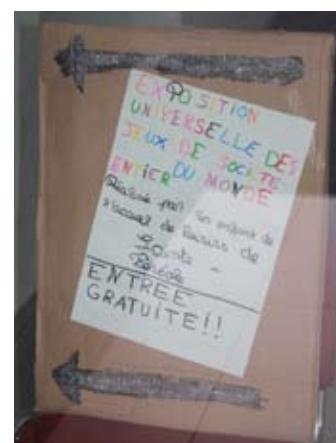 EXPOSITION
UNIVERSELLE DES
JEUX DE SOCIETE
ENTIER DU MONDE
Réalisé par les enfants de
l'accueil de loisirs de
ENTREE
GRATUITE!!